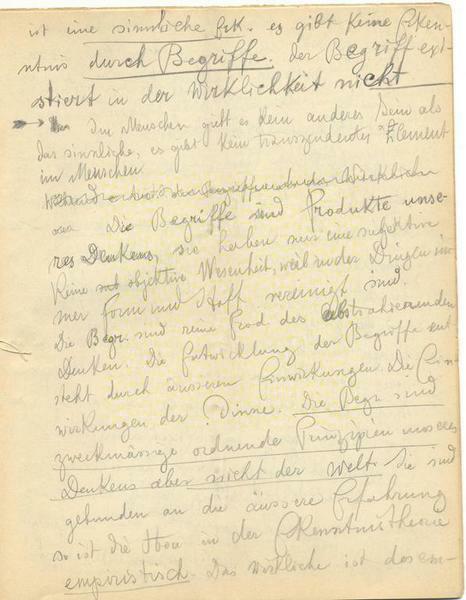 ist eine sinnliche Erk. es gibt keine Erken-
ntnis durch Begriffe. Der Begriff exi-
stiert in der Wirklichkeit nicht
Im Menschen gibt es kein anderes Sein als
das sinnliche, es gibt kein transzendentes Element
im Menschen
Die Begriffe sind Produkte unse-
res Denkens, sie haben nur eine subjektive
keine objektive Wesenheit, weil in den Dingen im-
mer Form und Stoff vereinigt sind.
Die Begr. sind reine Prod des abstrahierenden
Denken. Die Entwicklung der Begriffe ent-
steht durch äusseren Einwirkungen. Die Ein-
wirkungen der Sinne. Die Begr. sind
zweckmässige ordnende Prinzipien unseres
Denkens aber nicht der Welt. Sie sind
gebunden an die äussere Erfahrung
so ist die Stoa in der Erkenntnistheorie
empiristisch. Das wirkliche ist das em-